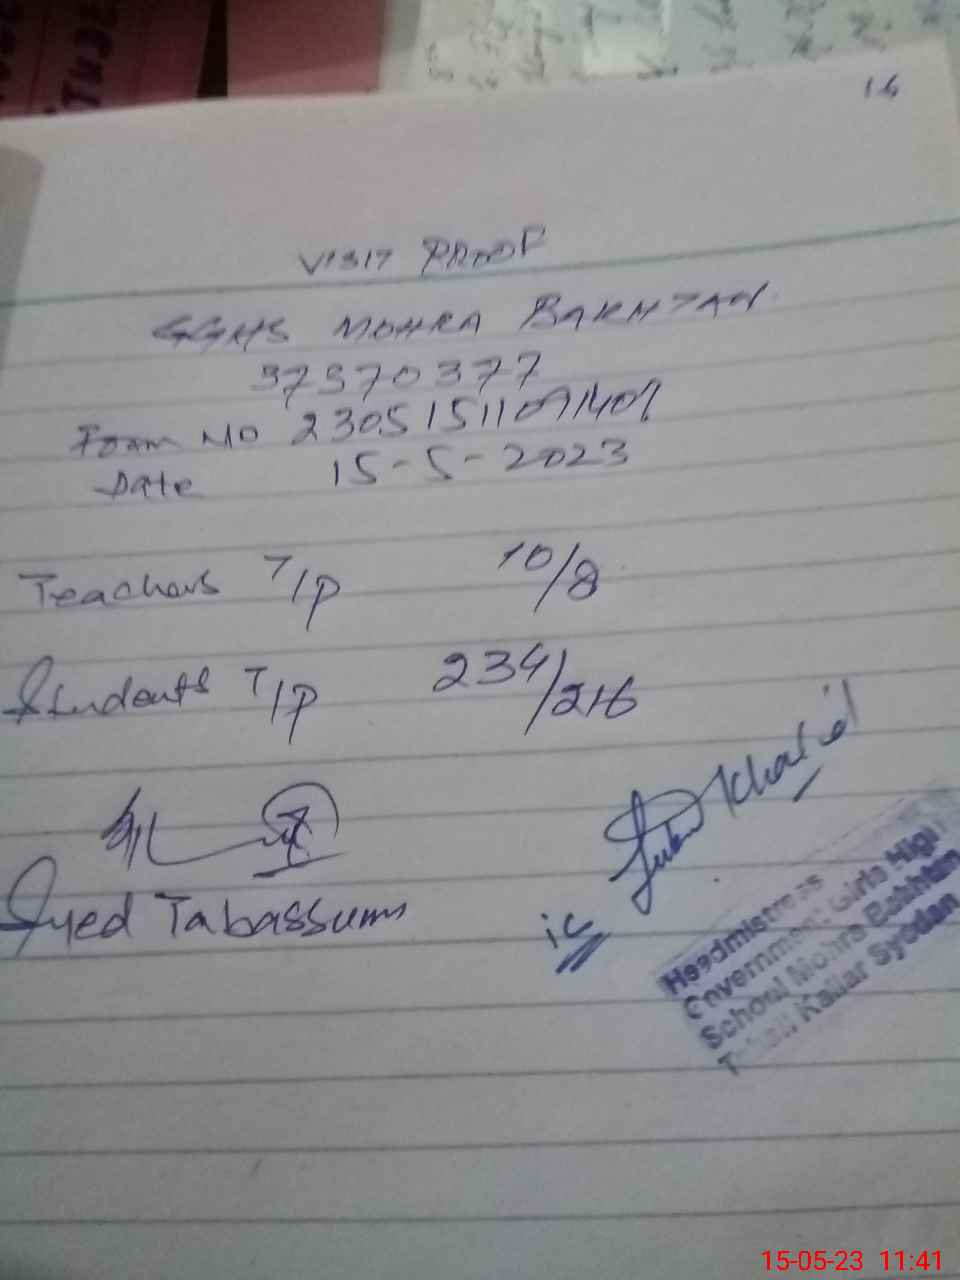 16
VISIT PROOF
GGHS MOHRA BAKHTAN
37370377
Form NO 23051511091401
Date 15-5-2023
Teachers T/P 10/8
Students T/P 234/216
Syed Tabassum
Khalid
ic
Headmistress
Government Girls High
School Mohra Bakhtan
Kallar Syedan
15-05-23 11:41